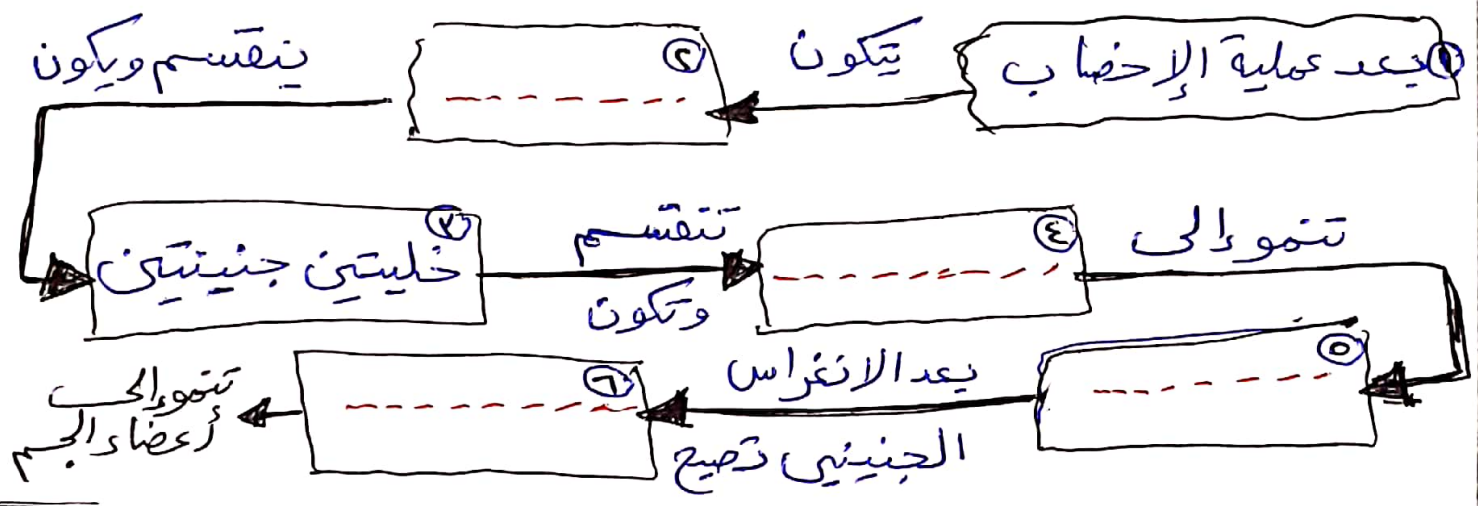 ① بعد عملية الإخصاب
يتكون
②
ينقسم ويكون
③ خليتين جنينيتين
تنقسم
وتكون
④
تنمو إلى
⑤
بعد الانغراس
الجنيني تصبح
⑥
تنمو إلى
أعضاء الجسم